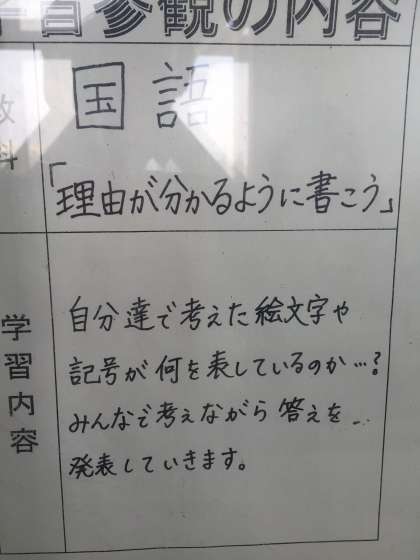 学習参観の内容
教科
国語
「理由が分かるように書こう」
学習内容
自分達で考えた絵文字や
記号が何を表しているのか…?
みんなで考えながら答えを
発表していきます。